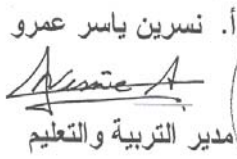 أ. نسرين ياسر عمرو
مدير التربية والتعليم